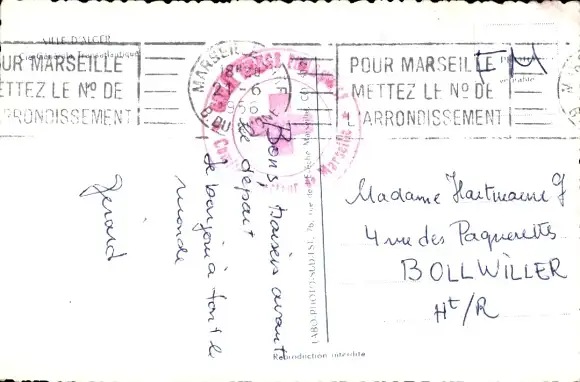 VILLE D'ALGER
POUR MARSEILLE
METTEZ LE Nº DE
L'ARRONDISSEMENT
MARSEILLE
6
1956
POUR MARSEILLE
METTEZ LE Nº DE
L'ARRONDISSEMENT
F M
Bons Baisers avant
le départ
le bonjour à tout le
monde
Gérard
Marseille
Madame Hartmann J
4 rue des Paquerettes
BOLLWILLER
Ht/R
Reproduction interdite